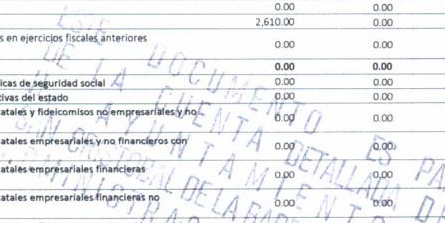 0.00 0.00
2,610.00 0.00
s en ejercicios fiscales anteriores 0.00 0.00
0.00 0.00
icas de seguridad social 0.00 0.00
tivas del estado 0.00 0.00
tatales y fideicomisos no empresariales y no 0.00 0.00
tatales empresariales y no financieros con 0.00 0.00
tatales empresariales financieras 0.00 0.00
tatales empresariales financieras no 0.00 0.00
ESTE DOCUMENTO ES PA
DE LA CUENTA DETALLADA D
AYUNTAMIENTO D
SAN CRISTOBAL DE LA BAR